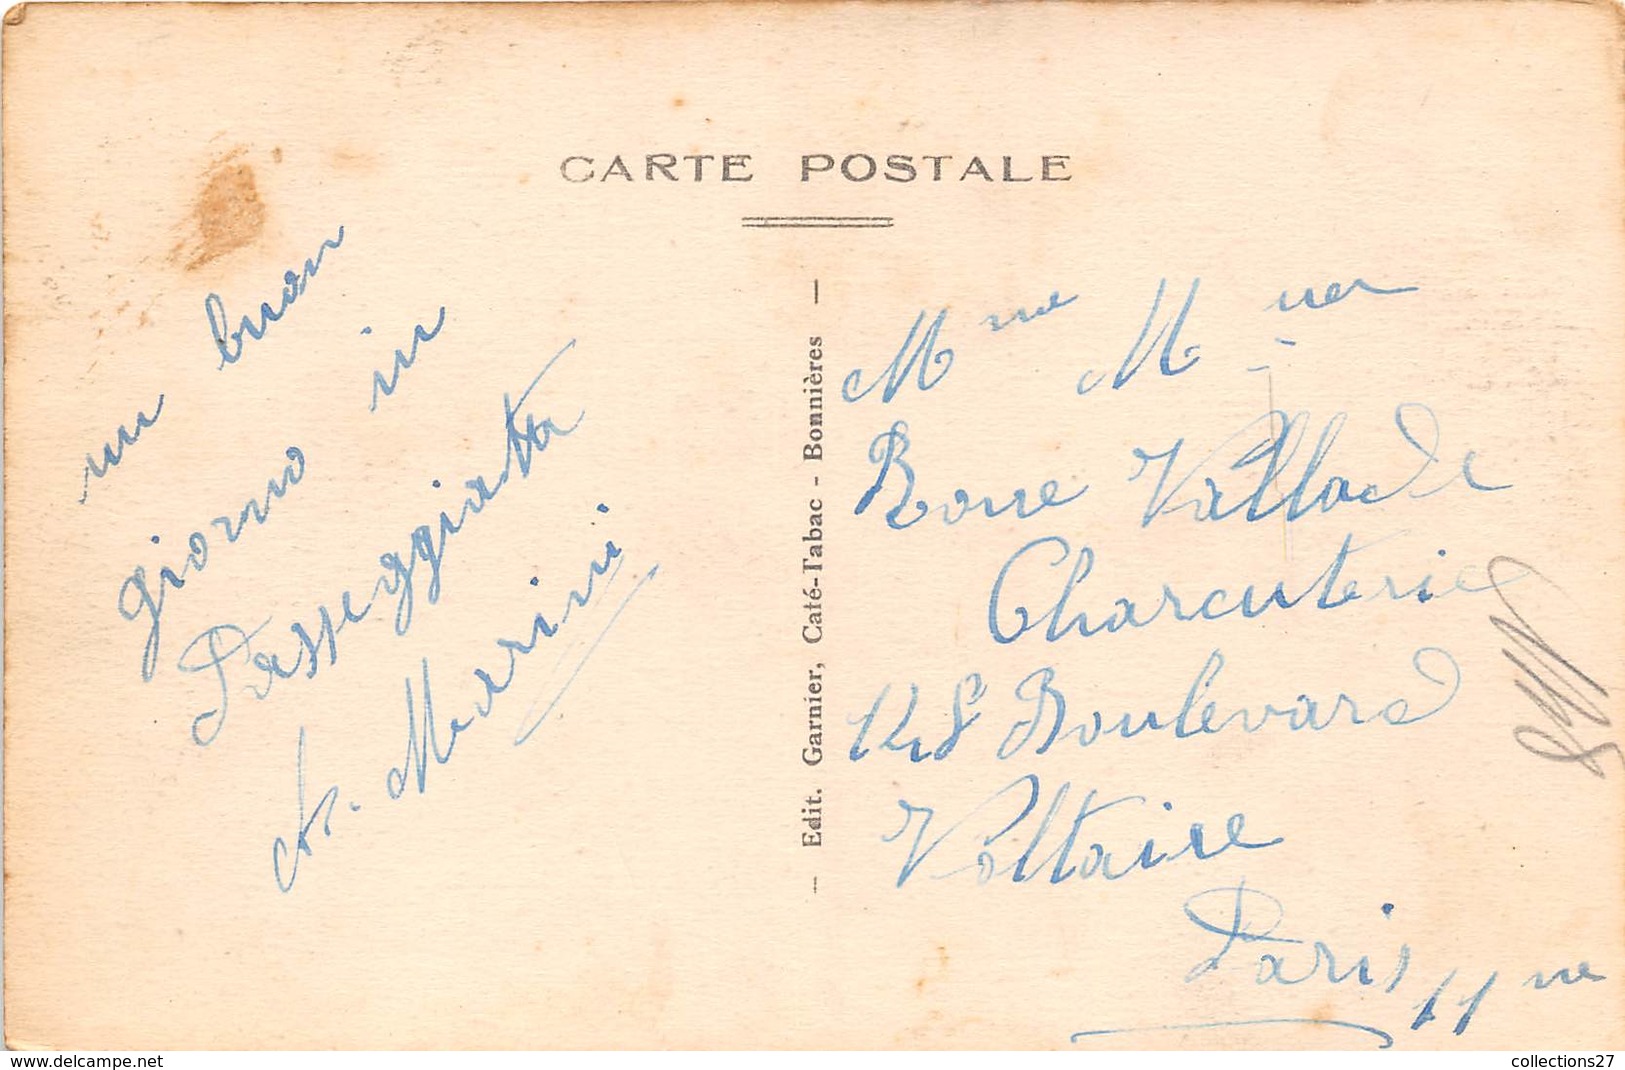 CARTE POSTALE
un buon
giorno in
Passeggiatta
A. Marini
— Edit. Garnier, Café-Tabac - Bonnières —
Mme M
Vallade
Charcuterie
128 Boulevard
Voltaire
Paris 11me
collections27